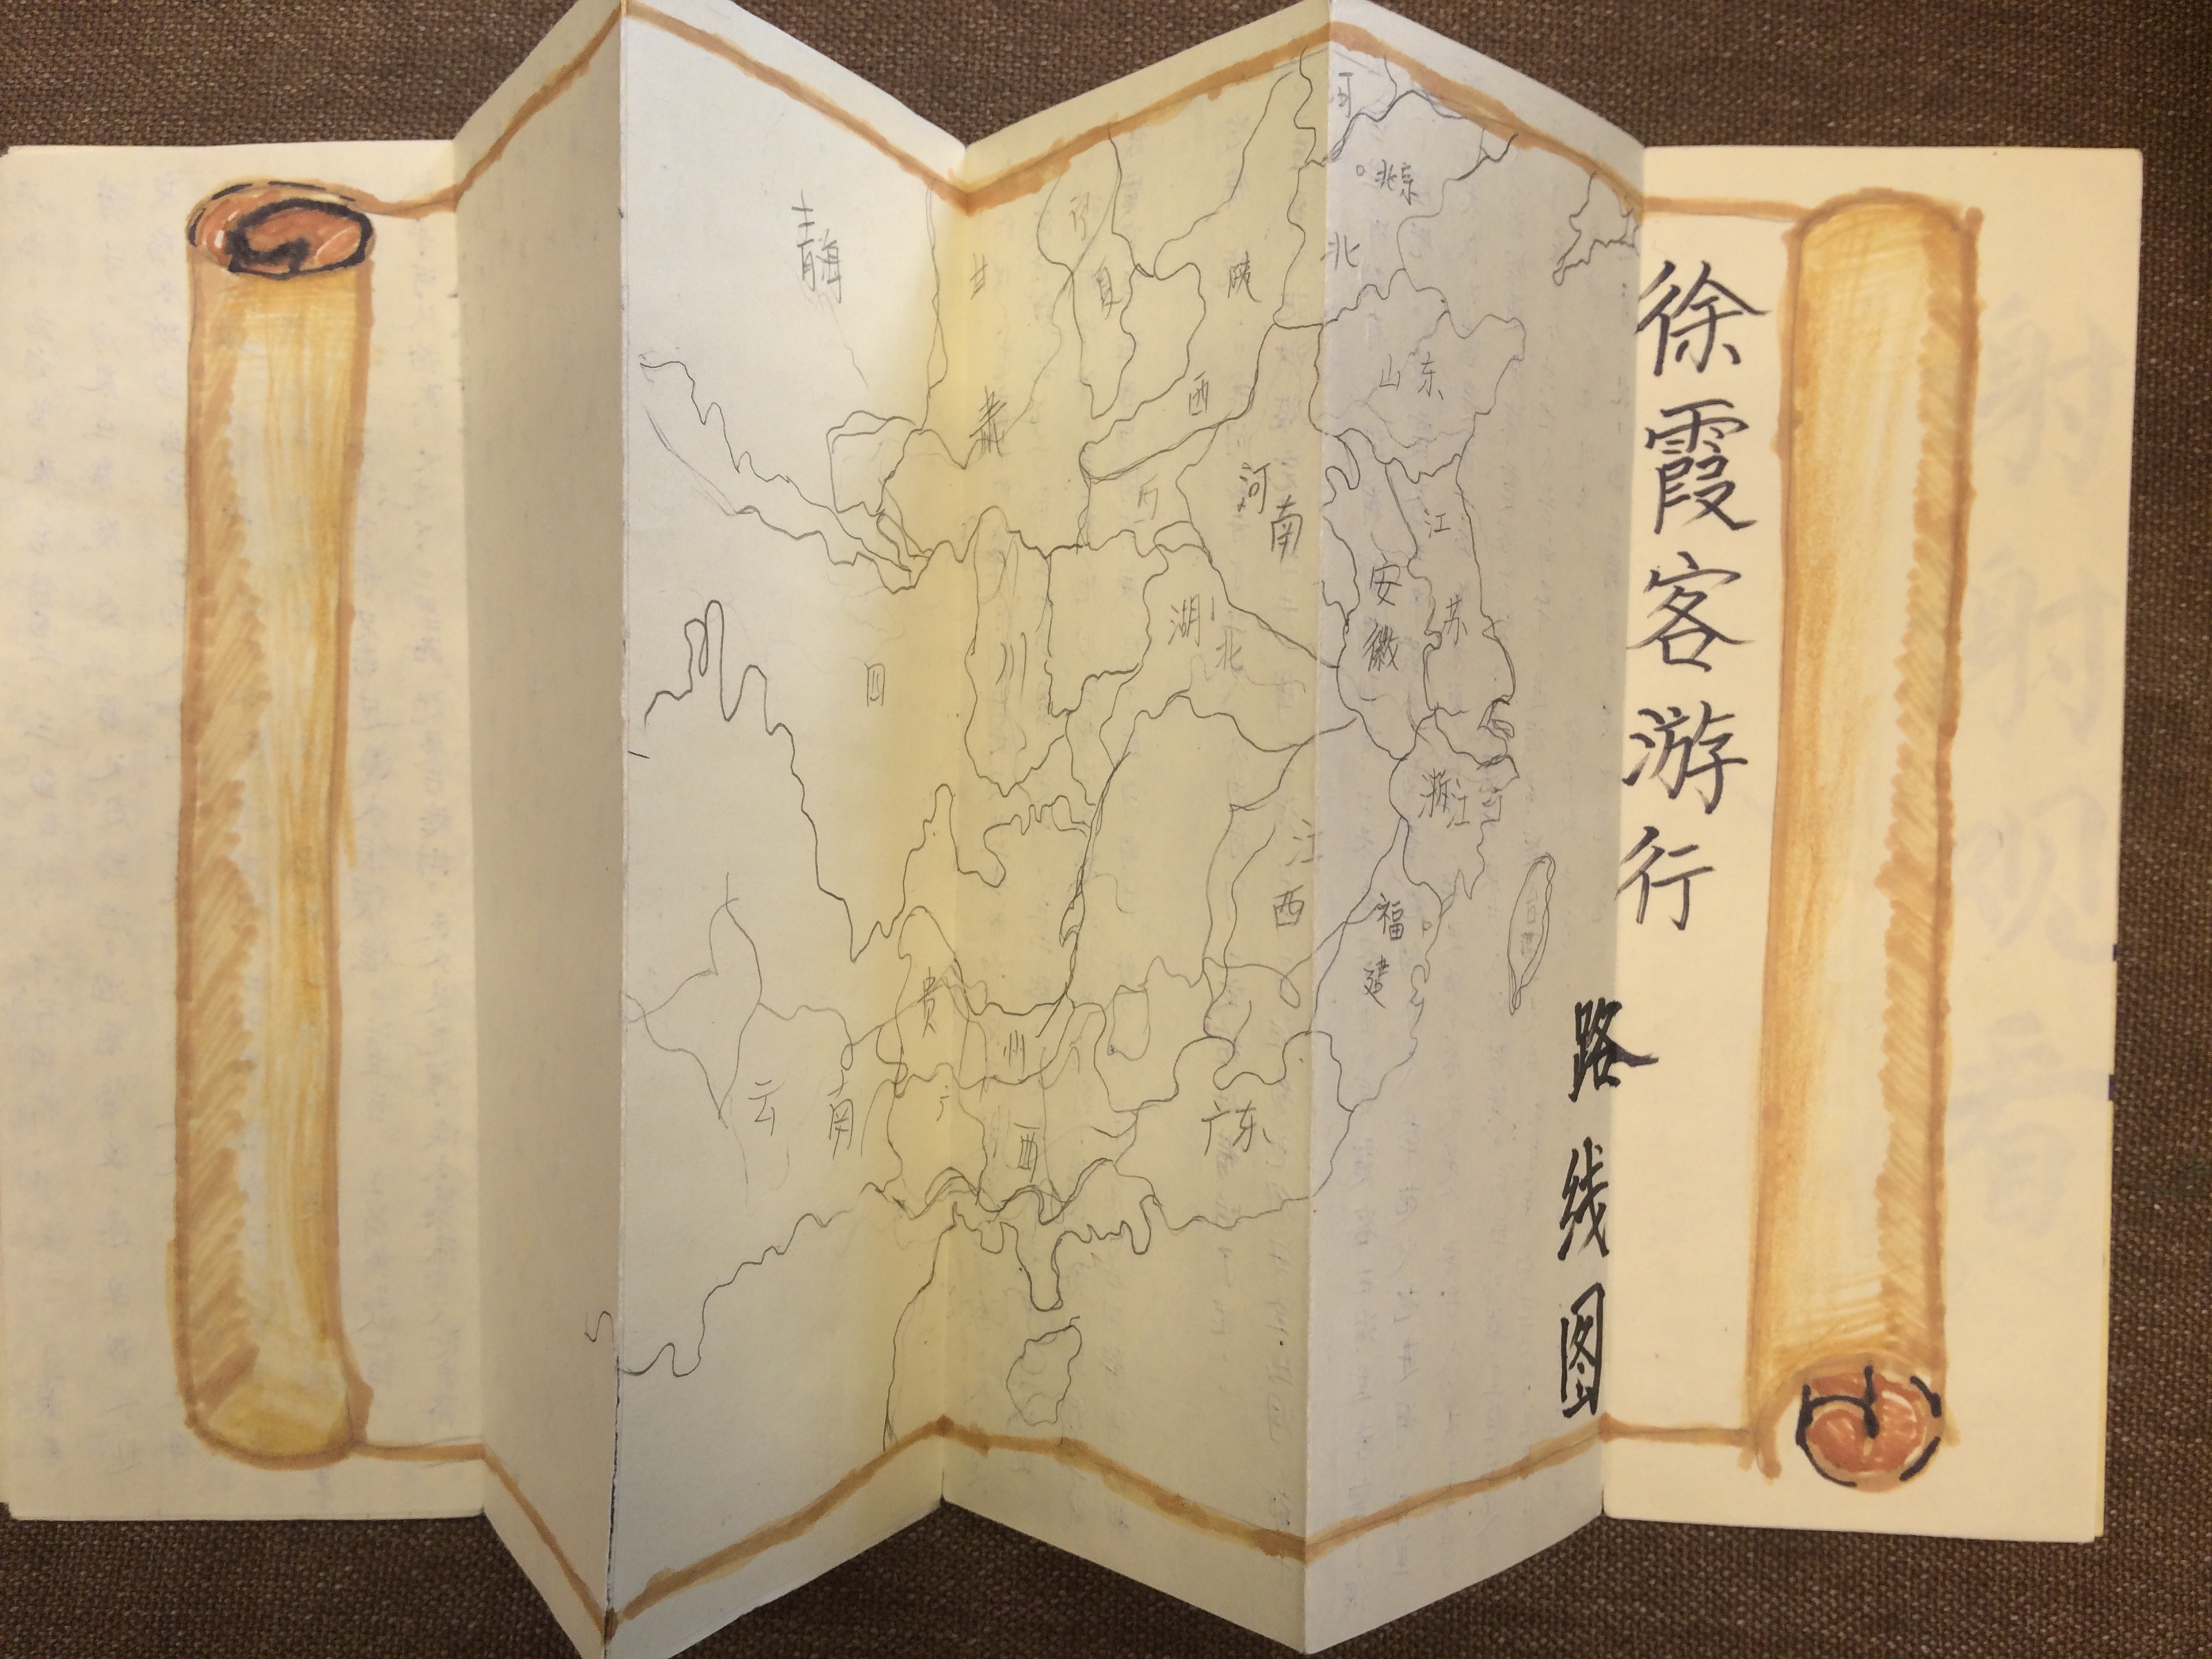 徐霞客游行
路线图
青海
甘肃
宁夏
陕西
河北
北京
山东
河南
江苏
安徽
四川
湖北
浙江
江西
福建
台湾
贵州
云南
广西
广东